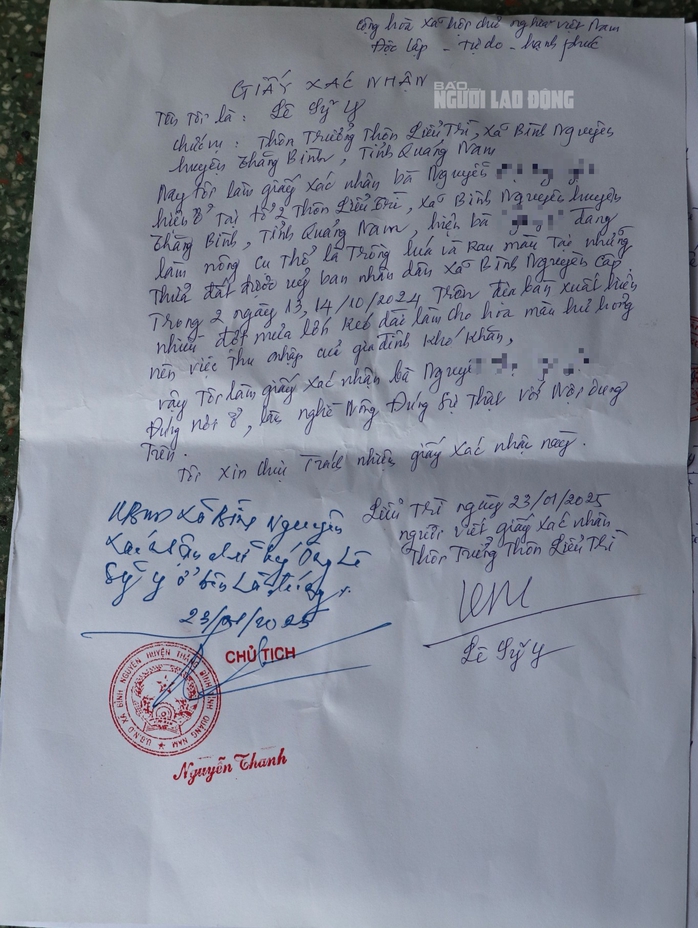 Cộng hòa xã hội chủ nghĩa Việt Nam
Độc lập - Tự do - hạnh phúc
GIẤY XÁC NHẬN
BÁO
NGƯỜI LAO ĐỘNG
Tên tôi là : Lê Sỹ Y
Chức vụ : Thôn Trưởng Thôn Liễu Trì, xã Bình Nguyên
huyện Thăng Bình, Tỉnh Quảng Nam
Nay tôi làm giấy xác nhận bà Nguyễn
hiện ở tại tổ 2 Thôn Liễu Trì, xã Bình Nguyên huyện
Thăng Bình, Tỉnh Quảng Nam, hiện bà đang
làm nông cụ thể là Trồng lúa và Rau màu Tại những
Thửa đất được uỷ ban nhân dân xã Bình Nguyên cấp,
Trong 2 ngày 13, 14/10/2024 Trên địa bàn xuất hiện
nhiều đợt mưa lớn kéo dài làm cho hoa màu hư hỏng
nên việc thu nhập của gia đình khó khăn,
vậy Tôi làm giấy xác nhận bà Nguyễ
Đúng nơi ở, làm nghề Nông Đúng sự Thật với Nội dung
Trên.
Tôi xin chịu Trách nhiệm giấy xác nhận này.
Liễu Trì ngày 23/01/2025
người viết giấy xác nhận
Thôn Trưởng Thôn Liễu Trì
Lê Sỹ Y
UBND xã Bình Nguyên
Xác nhận chữ ký ông Lê
Sỹ Y ở bên là đúng.
23/01/2025
CHỦ TỊCH
U.B.N.D XÃ BÌNH NGUYÊN HUYỆN THĂNG BÌNH TỈNH QUẢNG NAM
Nguyễn Thanh